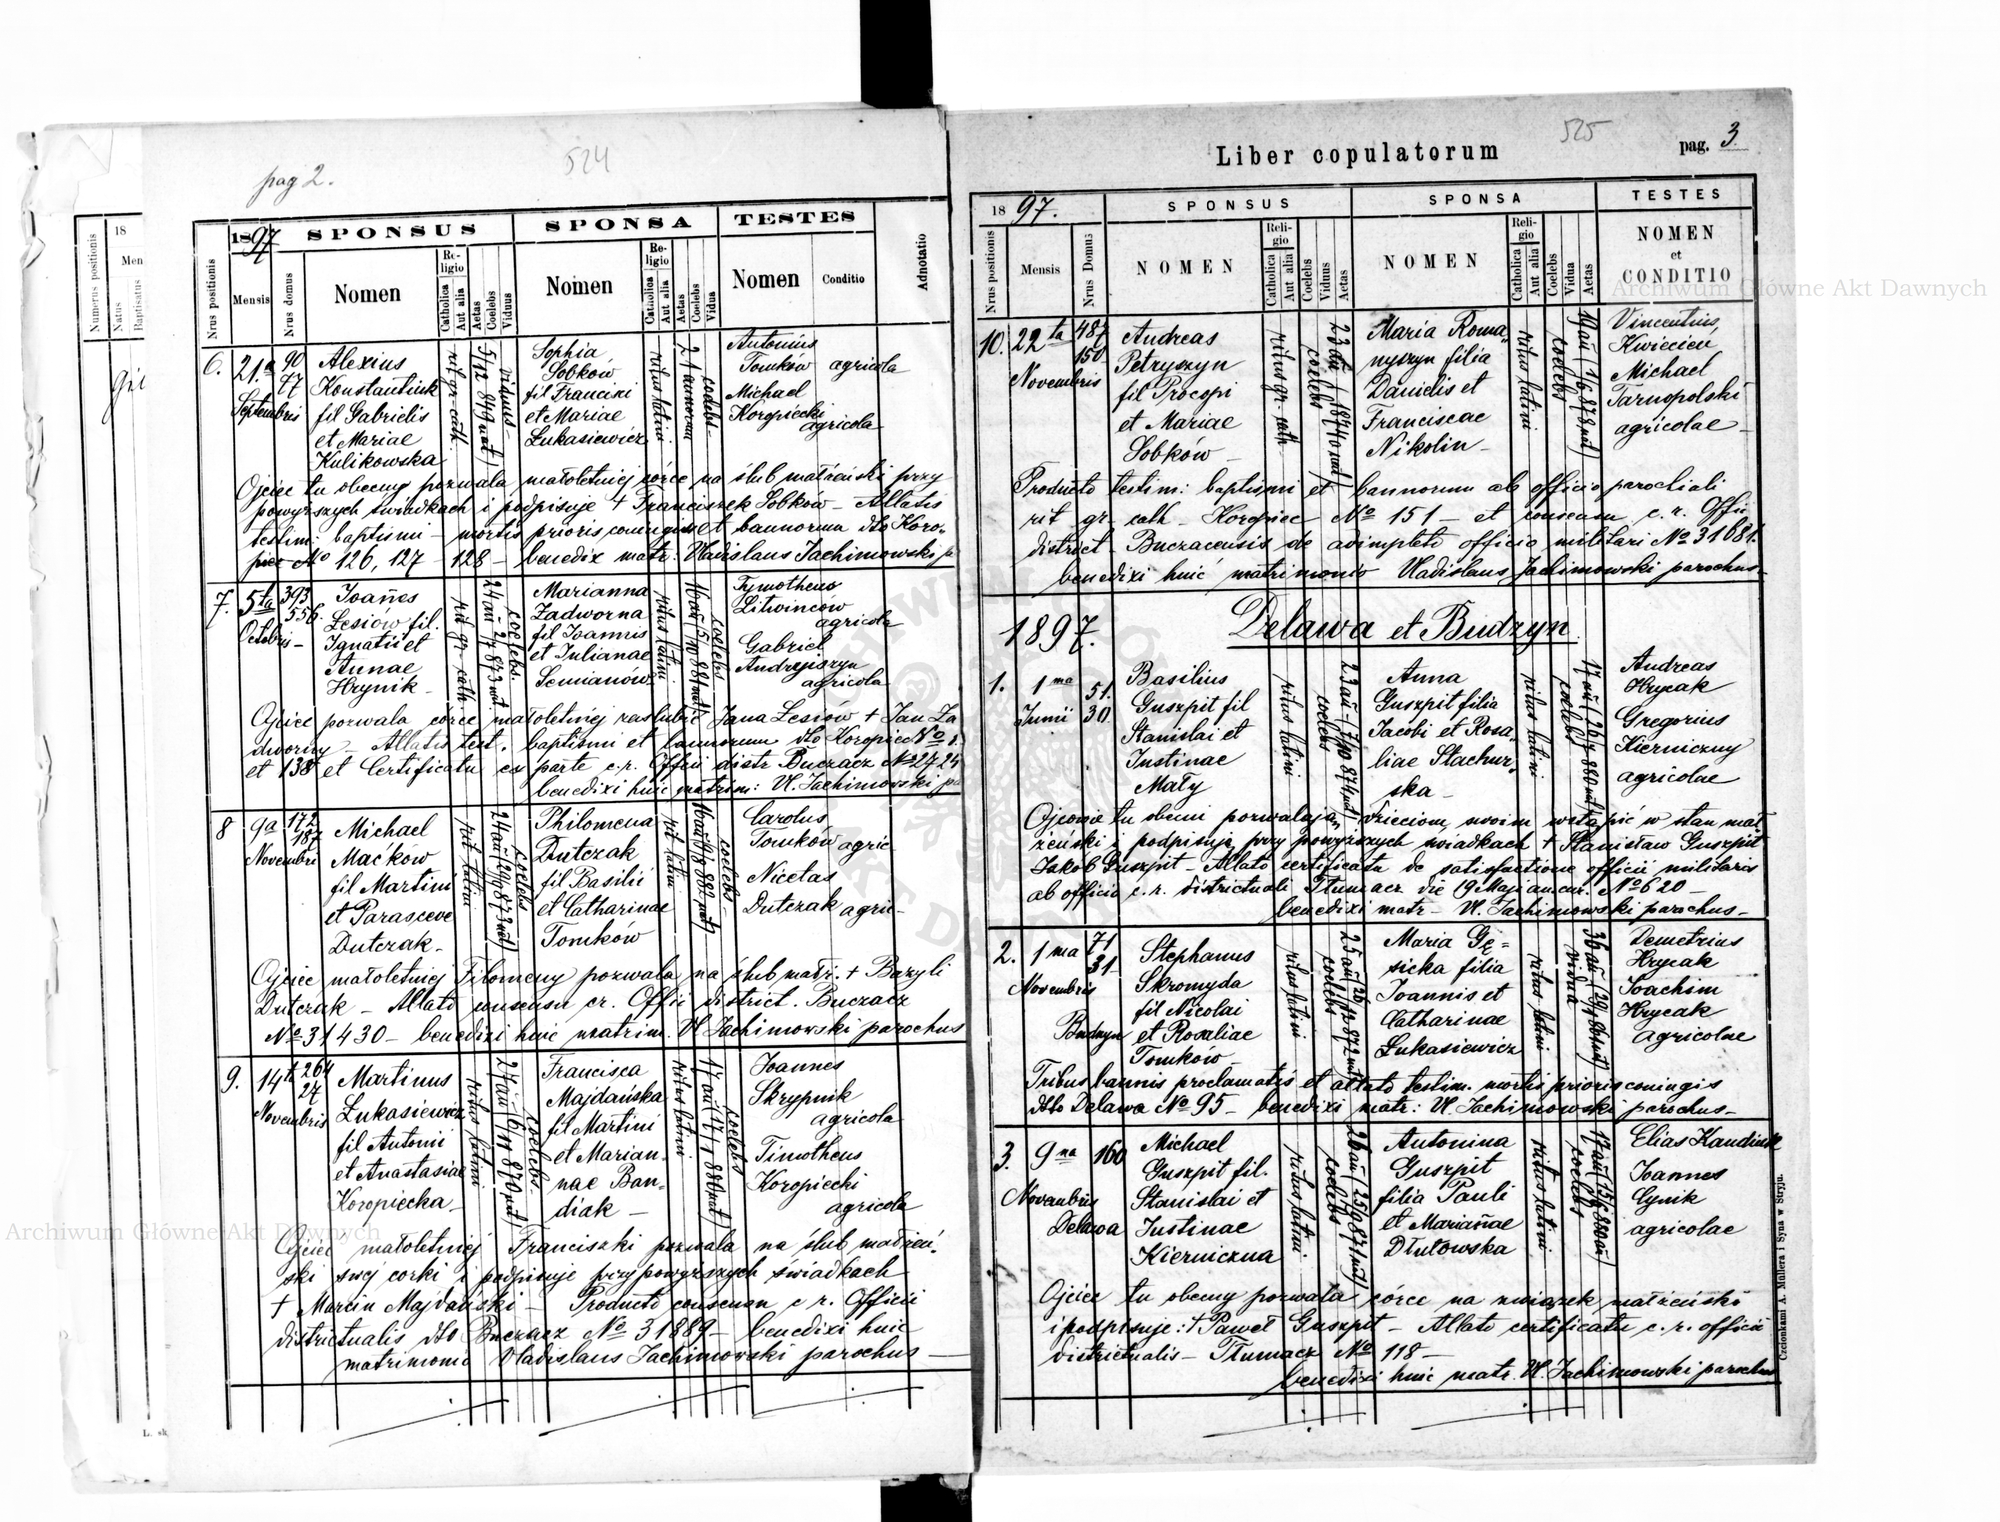 pag 2.
524
Nrus positionis
1897
Mensis
Nrus domus
SPONSUS
Nomen
Religio
Catholica
Aut alia
Aetas
Coelebs
Viduus
SPONSA
Nomen
Religio
Catholica
Aut alia
Aetas
Coelebs
Vidua
TESTES
Nomen
Conditio
Adnotatio
6.
21.a
Septembris
90
77
Alexius
Konstantiuk
fil Gabrielis
et Mariae
Kulikowska
rit gr-cath.
5/12 849 nat
viduus
Sophia
Sobków
fil Francisci
et Mariae
Łukasiewicz
ritus latini
21 annorum
coelebs
Antonius
Tomków agricola
Michael
Koropiecki
agricola
Ojciec tu obecny pozwala małoletniej córce na ślub małżeński przy
powyższych świadkach i podpisuje + Franciszek Sobków – Allatis
testim: baptismi – mortis prioris conjugis et bannorum dto Koro-
piec No 126, 127 – 128 – benedix matr: Vladislaus Jachimowski p
7.
5ta
Octobris –
393
556.
Joannes
Lesiów fil.
Ignatii et
Annae
Hrynik –
rit gr-cath.
coelebs.
Marianna
Zadworna
fil Joannis
et Julianae
Semianów
ritus latini
coelebs
Tymotheus
Litwincow
agricola
Gabriel
Andrejiszyn
agricola
Ojciec pozwala córce małoletniej zaslubić Jana Lesiów + Jan Za
dworny – Allatis test. baptismi et bannorum dto Koropiec No 1.
et 138 et Certificatu ex parte c.r. Offcii distr Buczacz No 2724
benedixi huic matrim: Vl. Jachimowski pa
8
9a
Novembris
172
187
Michael
Maćków
fil Martini
et Parasceve
Dutczak –
rit latini
coelebs
Philomena
Dutczak
fil Basilii
et Catharinae
Tomków
rit latini
coelebs
Carolus
Tomków agric–
Nicetas
Dutczak agric–
Ojciec małoletniej Filomeny pozwala na ślub małż. + Bazyli
Dutczak – Allato consensu cr. Offcii district. Buczacz
No 31430 – benedixi huic matrim. Vl Jachimowski parochus
9.
14ta
Novembris
264
27
Martinus
Łukasiewicz
fil Antonii
et Anastasiae
Koropiecka –
ritus latini
coelebs
Francisca
Majdańska
fil Martini
et Marian-
nae Ban-
diak –
ritus latini
coelebs
Joannes
Skrypnik
agricola
Timotheus
Koropiecki
agricola
Ojciec małoletniej Franciszki pozwala na ślub małżeń-
ski swej corki i podpisuje przy powyższych świadkach
+ Marcin Majdański – Producto consensu c r. Officii
districtualis dto Buczacz No 31889 – benedixi huic
matrimonio Vladislaus Jachimowski parochus –
Liber copulatorum
525
pag. 3
Nrus positionis
1897.
Mensis
Nrus Domus
SPONSUS
NOMEN
Religio
Catholica
Aut alia
Coelebs
Viduus
Aetas
SPONSA
NOMEN
Religio
Catholica
Aut alia
Coelebs
Vidua
Aetas
TESTES
NOMEN
et
CONDITIO
10.
22ta
Novembris
487
150
Andreas
Petryszyn
fil Procopi
et Mariae
Sobków –
ritus gr-cath
coelebs
Maria Roma-
nyszyn filia
Danielis et
Franciscae
Nikolin –
ritus latini
coelebs
Vincentius,
Kwiecien
Michael
Tarnopolski
agricolae –
Producto testim: baptismi et bannorum ab officio parochiali
rit gr-cath – Koropiec No 151 – et consensu c. r. Offic.
district – Buczacensis de adimpleto officio militari No 31681.
benedixi huic matrimonio Vladislaus Jachimowski parochus –
1897. Delawa et Budzyn.
1.
1ma
Junii
51.
30.
Basilius
Guszpit fil
Stanislai et
Justinae
Mały
ritus latini
coelebs
Anna
Guszpit filia
Jacobi et Rosa-
liae Stachur-
ska –
ritus latini
coelebs
Andreas
Hrycak
Gregorius
Kierniczny
agricolae
Ojcowie tu obecni pozwalają dzieciom swoim wstąpić w stan mał-
żeński i podpisują przy powyższych świadkach + Stanisław Guszpit
Jakób Guszpit – Allato certificatu de satisfactione officii militaris
ab officio c. r. districtuali Tłumacz die 19 Maji an. cur. No 620 –
benedixi matr – Vl. Jachimowski parochus –
2.
1 ma
Novembris
Budzyn
71
31
Stephanus
Skromyda
fil Nicolai
et Rosaliae
Tomków –
ritus latini
coelebs
Maria Gę-
sicka filia
Joannis et
Catharinae
Łukasiewicz
ritus latini
vidua
Demetrius
Hrycak
Joachim
Hrycak
agricolae
Tribus bannis proclamatis et allato testim. mortis prioris coniugis
dto Delawa No 95 – benedixi matr: Vl. Jachimowski parochus –
3.
9na
Novembris
Delawa
160
Michael
Guszpit fil.
Stanislai et
Justinae
Kierniczna
ritus latini
coelebs
Antonina
Guszpit
filia Pauli
et Mariañae
Dłutowska
ritus latini
coelebs
Elias Kandiuk
Joannes
Cynik
agricolae
Ojciec tu obecny pozwala córce na związek małżeński
i podpisuje: + Paweł Guszpit – Allato certificatu c. r. officii
districtualis – Tłumacz No 118 –
benedixi huic matr. Vl. Jachimowski parochus
Czcionkami A. Müllera i Syna w Stryju.
Numerus positionis
18
Men
Natus
Baptisatus
Archiwum Główne Akt Dawnych
Archiwum Główne Akt Dawnych